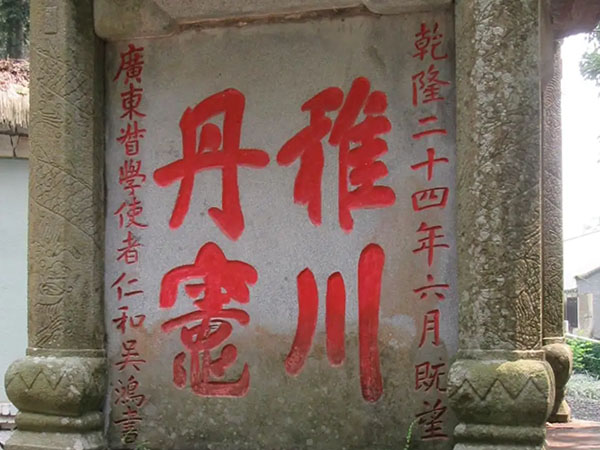 乾隆二十四年六月既望
稚川
丹竈
廣東督學使者仁和吴鴻書